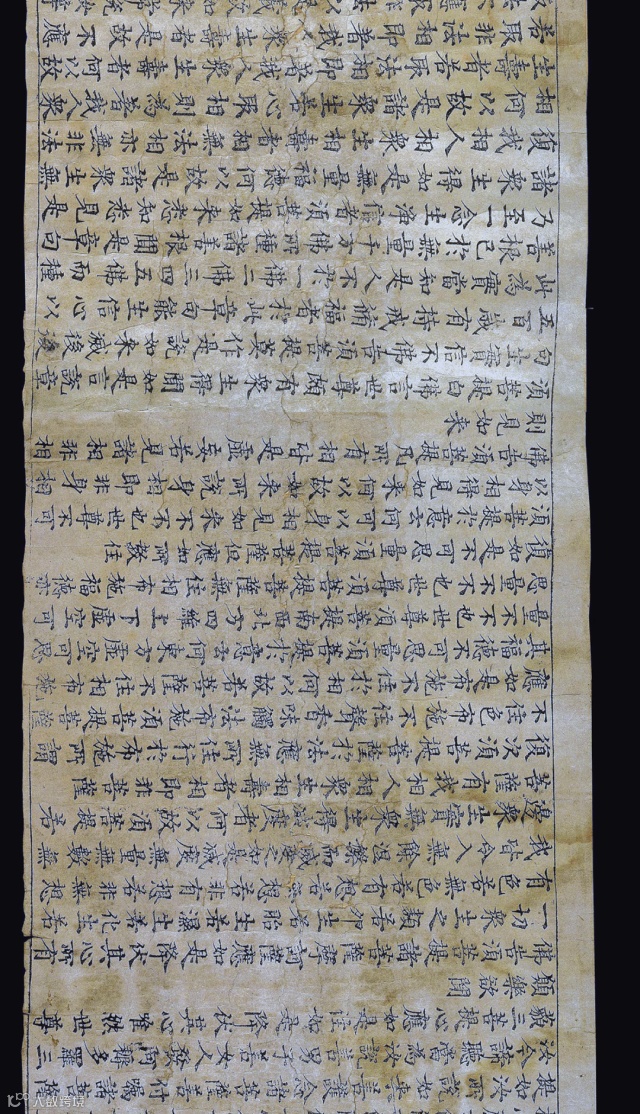 提如汝所說如來善護念諸菩薩善付囑諸菩薩
汝今諦聽當為汝說善男子善女人發阿耨多羅三
藐三菩提心應如是住如是降伏其心唯然世尊
願樂欲聞
佛告須菩提諸菩薩摩訶薩應如是降伏其心所有
一切眾生之類若卵生若胎生若濕生若化生若
有色若無色若有想若無想若非有想非無想
我皆令入無餘涅槃而滅度之如是滅度無量無數無
邊眾生實無眾生得滅度者何以故須菩提若
菩薩有我相人相眾生相壽者相即非菩薩
復次須菩提菩薩於法應無所住行於布施所謂
不住色布施不住聲香味觸法布施須菩提菩薩
應如是布施不住於相何以故若菩薩不住相布施
其福德不可思量須菩提於意云何東方虛空可思
量不不也世尊須菩提南西北方四維上下虛空可
思量不不也世尊須菩提菩薩無住相布施福德亦
復如是不可思量須菩提菩薩但應如所教住
須菩提於意云何可以身相見如來不不也世尊不可
以身相得見如來何以故如來所說身相即非身相
佛告須菩提凡所有相皆是虛妄若見諸相非相
則見如來
須菩提白佛言世尊頗有眾生得聞如是言說章
句生實信不佛告須菩提莫作是說如來滅後後
五百歲有持戒修福者於此章句能生信心以
此為實當知是人不於一佛二佛三四五佛而種
善根已於無量千万佛所種諸善根聞是章句
乃至一念生淨信者須菩提如來悉知悉見是
諸眾生得如是無量福德何以故是諸眾生無
復我相人相眾生相壽者相無法相亦無非法
相何以故是諸眾生若心取相則為著我人眾
生壽者若取法相即著我人眾生壽者何以故
若取非法相即著我人眾生壽者是故不應
大叔跨境